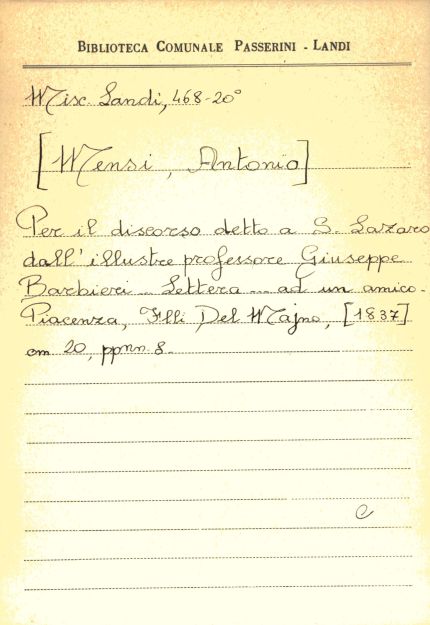 BIBLIOTECA COMUNALE PASSERINI - LANDI
Misc. Landi, 468-20°
[Mensi, Antonio]
Per il discorso detto a S. Lazaro
dall'illustre professore Giuseppe
Barbieri... Lettera... ad un amico.
Piacenza, F.lli Del Majno, [1837]
cm 20, ppnn. 8.
C